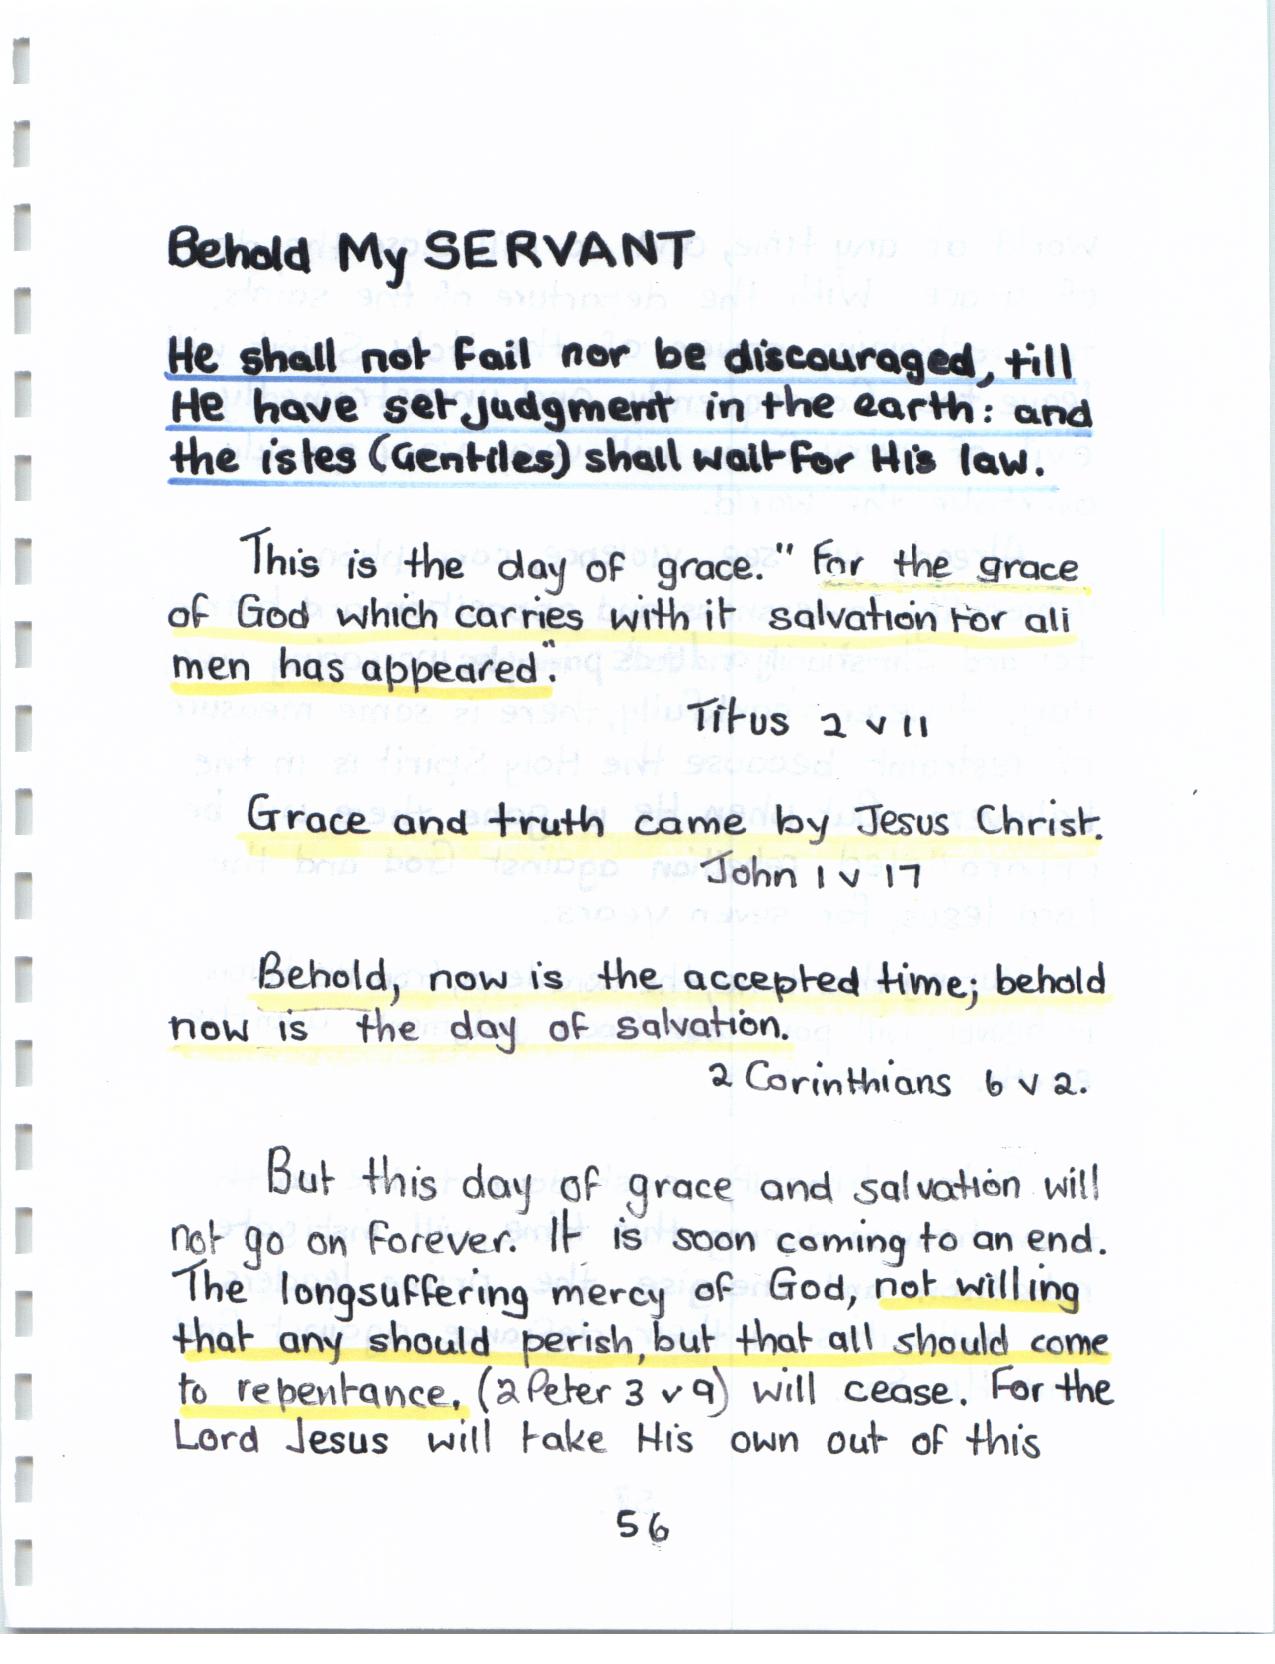 Behold My SERVANT
He shall not fail nor be discouraged, till
He have set judgment in the earth: and
the isles (Gentiles) shall wait for His law.
This is the day of grace." For the grace
of God which carries with it salvation for all
men has appeared".
Titus 2 v 11
Grace and truth came by Jesus Christ.
John 1 v 17
Behold, now is the accepted time; behold
now is the day of salvation.
2 Corinthians 6 v 2.
But this day of grace and salvation will
not go on forever. It is soon coming to an end.
The longsuffering mercy of God, not willing
that any should perish, but that all should come
to repentance. (2 Peter 3 v 9) will cease. For the
Lord Jesus will take His own out of this
56